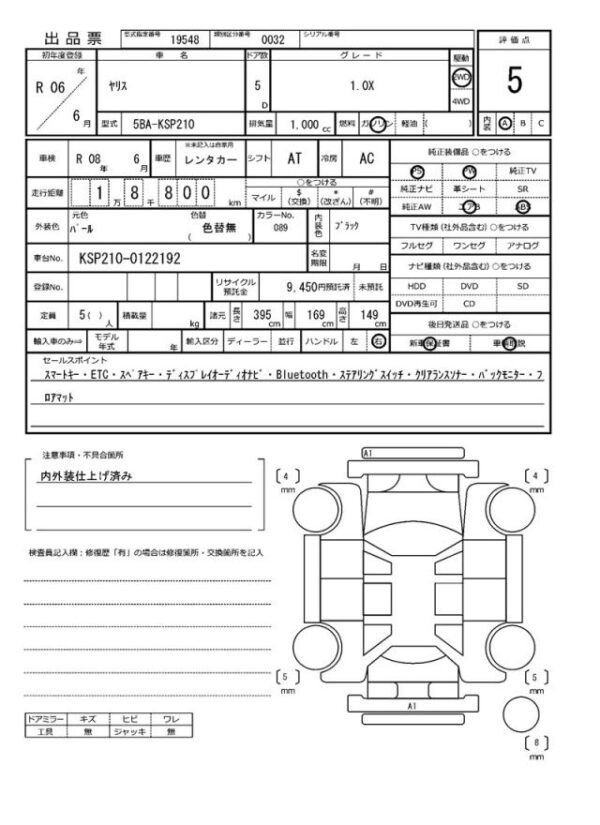 出品票 型式指定番号 19548 類別区分番号 0032 シリアル番号
評価点
5
内装 A B C
初年度登録 車名 ドア数 グレード 駆動
R 06 年 ヤリス 5 D 1.0X 2WD
4WD
6 月 型式 5BA-KSP210 排気量 1,000 cc 燃料 ガソリン 軽油 ( )
車検 R 08 年 6 月 車歴 ※未記入は自家用 レンタカー シフト AT 冷房 AC
走行距離 1 万 8 千 8 0 0 km ○をつける
マイル $ (交換) * (改ざん) # (不明)
外装色 元色 パール 色替 ( 色替無 ) カラーNo. 089 内装色 ブラック
車台No. KSP210-0122192 名変期限 月 日
登録No. リサイクル預託金 9,450円預託済 未預託
定員 5 ( ) 人 積載量 kg 諸元 長さ 395 cm 幅 169 cm 高さ 149 cm
輸入車のみ⇒ モデル年式 年 輸入区分 ディーラー 並行 ハンドル 左 右
純正装備品 ○をつける
PS PW 純正TV
純正ナビ 革シート SR
純正AW エアB ABS
TV種類 (社外品含む) ○をつける
フルセグ ワンセグ アナログ
ナビ種類 (社外品含む) ○をつける
HDD DVD SD
DVD再生可 CD
後日発送品 ○をつける
新車保証書 車輌取説
セールスポイント
スマートキー・ETC・スペアキー・ディスプレイオーディオナビ・Bluetooth・ステアリングスイッチ・クリアランスソナー・バックモニター・フ
ロアマット
注意事項・不具合箇所
内外装仕上げ済み
検査員記入欄:修復歴「有」の場合は修復箇所・交換箇所を記入
A1
4 mm
4 mm
5 mm
5 mm
A1
8 mm
ドアミラー キズ ヒビ ワレ
工具 無 ジャッキ 無